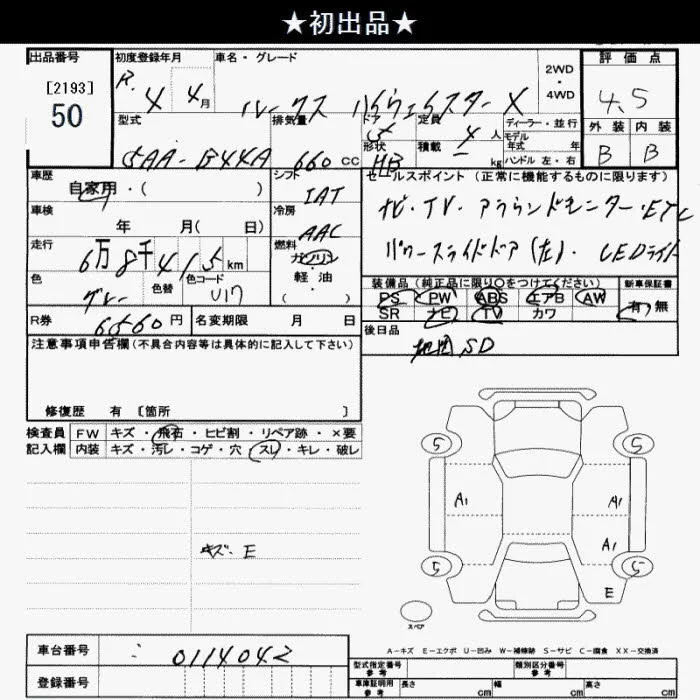 ★初出品★
出品番号 初度登録年月 車名・グレード 評価点
[2193]
50
R. 4 4月 ルークス ハイウェイスター X 2WD・4WD 4.5
型式 排気量 ドア 定員 4人 ディーラー・並行 外装 内装
5AA-B44A 660cc 5 形状 HB 積載 - kg モデル年式 年 ハンドル 左・右 B B
車歴 シフト セールスポイント (正常に機能するものに限ります)
自家用・( ) IAT
ナビ・TV・アラウンドモニター・ETC
車検 年 月( 日) 冷房 AAC
パワースライドドア(左)・LEDライト
走行 6万8千415km 燃料 ガソリン・軽油・( )
色 グレー 色替 色コード U17
装備品 (純正品に限り○をつけてください) 新車保証書
PS PW ABS エアB AW 有・無
SR ナビ TV カワ
R券 6560円 名変期限 月 日
後日品 地図SD
注意事項申告欄(不具合内容等は具体的に記入して下さい)
修復歴 有 [箇所 ]
検査員 FW キズ・飛石・ヒビ割・リペア跡・×要
記入欄 内装 キズ・汚レ・コゲ・穴・スレ・キレ・破レ
キズ・E
5 5
A1 A1
A1
5 5
E
スペア
A-キズ E-エクボ U-凹み W-補修跡 S-サビ C-腐食 XX-交換済
車台番号 0114042
型式指定番号 参考 類別区分番号 参考
登録番号
車庫証明用 参考 長さ cm 幅 cm 高さ cm